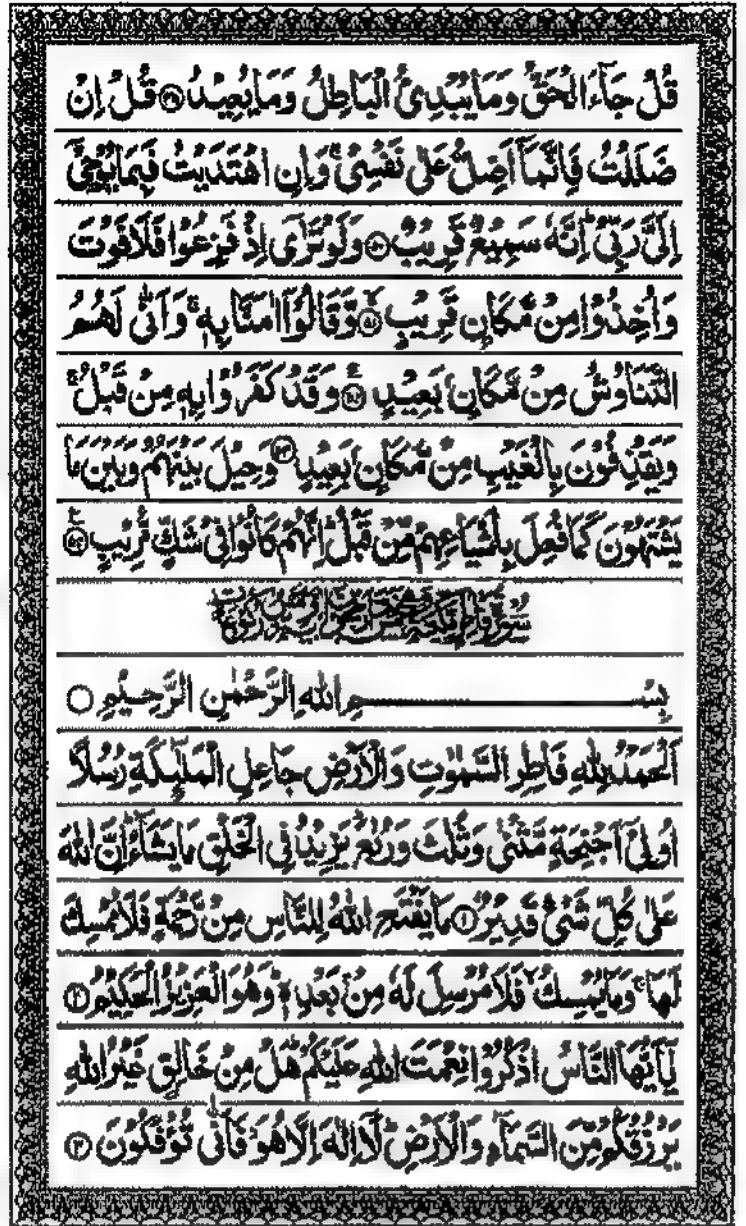 قُلْ جَآءَ الْحَقُّ وَمَا يُبْدِئُ الْبَاطِلُ وَمَا يُعِيْدُ ﴿۴۹﴾ قُلْ اِنْ
ضَلَلْتُ فَاِنَّمَاۤ اَضِلُّ عَلٰى نَفْسِىْ ۚ وَاِنِ اهْتَدَيْتُ فَبِمَا يُوْحِىْۤ
اِلَىَّ رَبِّىْ ؕ اِنَّهٗ سَمِيْعٌ قَرِيْبٌ ﴿۵۰﴾ وَلَوْ تَرٰٓى اِذْ فَزِعُوْا فَلَا فَوْتَ
وَاُخِذُوْا مِنْ مَّكَانٍ قَرِيْبٍ ﴿۵۱﴾ وَّقَالُوْۤا اٰمَنَّا بِهٖ ۚ وَاَنّٰى لَهُمُ
التَّنَاوُشُ مِنْ مَّكَانٍۭ بَعِيْدٍ ﴿۵۲﴾ وَّقَدْ كَفَرُوْا بِهٖ مِنْ قَبْلُ ۚ
وَيَقْذِفُوْنَ بِالْغَيْبِ مِنْ مَّكَانٍۭ بَعِيْدٍ ﴿۵۳﴾ وَحِيْلَ بَيْنَهُمْ وَبَيْنَ مَا
يَشْتَهُوْنَ كَمَا فُعِلَ بِاَشْيَاعِهِمْ مِّنْ قَبْلُ ؕ اِنَّهُمْ كَانُوْا فِىْ شَكٍّ مُّرِيْبٍ ﴿۵۴﴾
بِسْمِ اللهِ الرَّحْمٰنِ الرَّحِيْمِ
اَلْحَمْدُ لِلّٰهِ فَاطِرِ السَّمٰوٰتِ وَالْاَرْضِ جَاعِلِ الْمَلٰٓئِكَةِ رُسُلًا
اُولِىْۤ اَجْنِحَةٍ مَّثْنٰى وَثُلٰثَ وَرُبٰعَ ؕ يَزِيْدُ فِى الْخَلْقِ مَا يَشَآءُ ؕ اِنَّ اللهَ
عَلٰى كُلِّ شَىْءٍ قَدِيْرٌ ﴿۱﴾ مَا يَفْتَحِ اللهُ لِلنَّاسِ مِنْ رَّحْمَةٍ فَلَا مُمْسِكَ
لَهَا ۚ وَمَا يُمْسِكْ ۙ فَلَا مُرْسِلَ لَهٗ مِنْۢ بَعْدِهٖ ؕ وَهُوَ الْعَزِيْزُ الْحَكِيْمُ ﴿۲﴾
يٰۤاَيُّهَا النَّاسُ اذْكُرُوْا نِعْمَتَ اللهِ عَلَيْكُمْ ؕ هَلْ مِنْ خَالِقٍ غَيْرُ اللهِ
يَرْزُقُكُمْ مِّنَ السَّمَآءِ وَالْاَرْضِ ؕ لَاۤ اِلٰهَ اِلَّا هُوَ ۖ فَاَنّٰى تُؤْفَكُوْنَ ﴿۳﴾